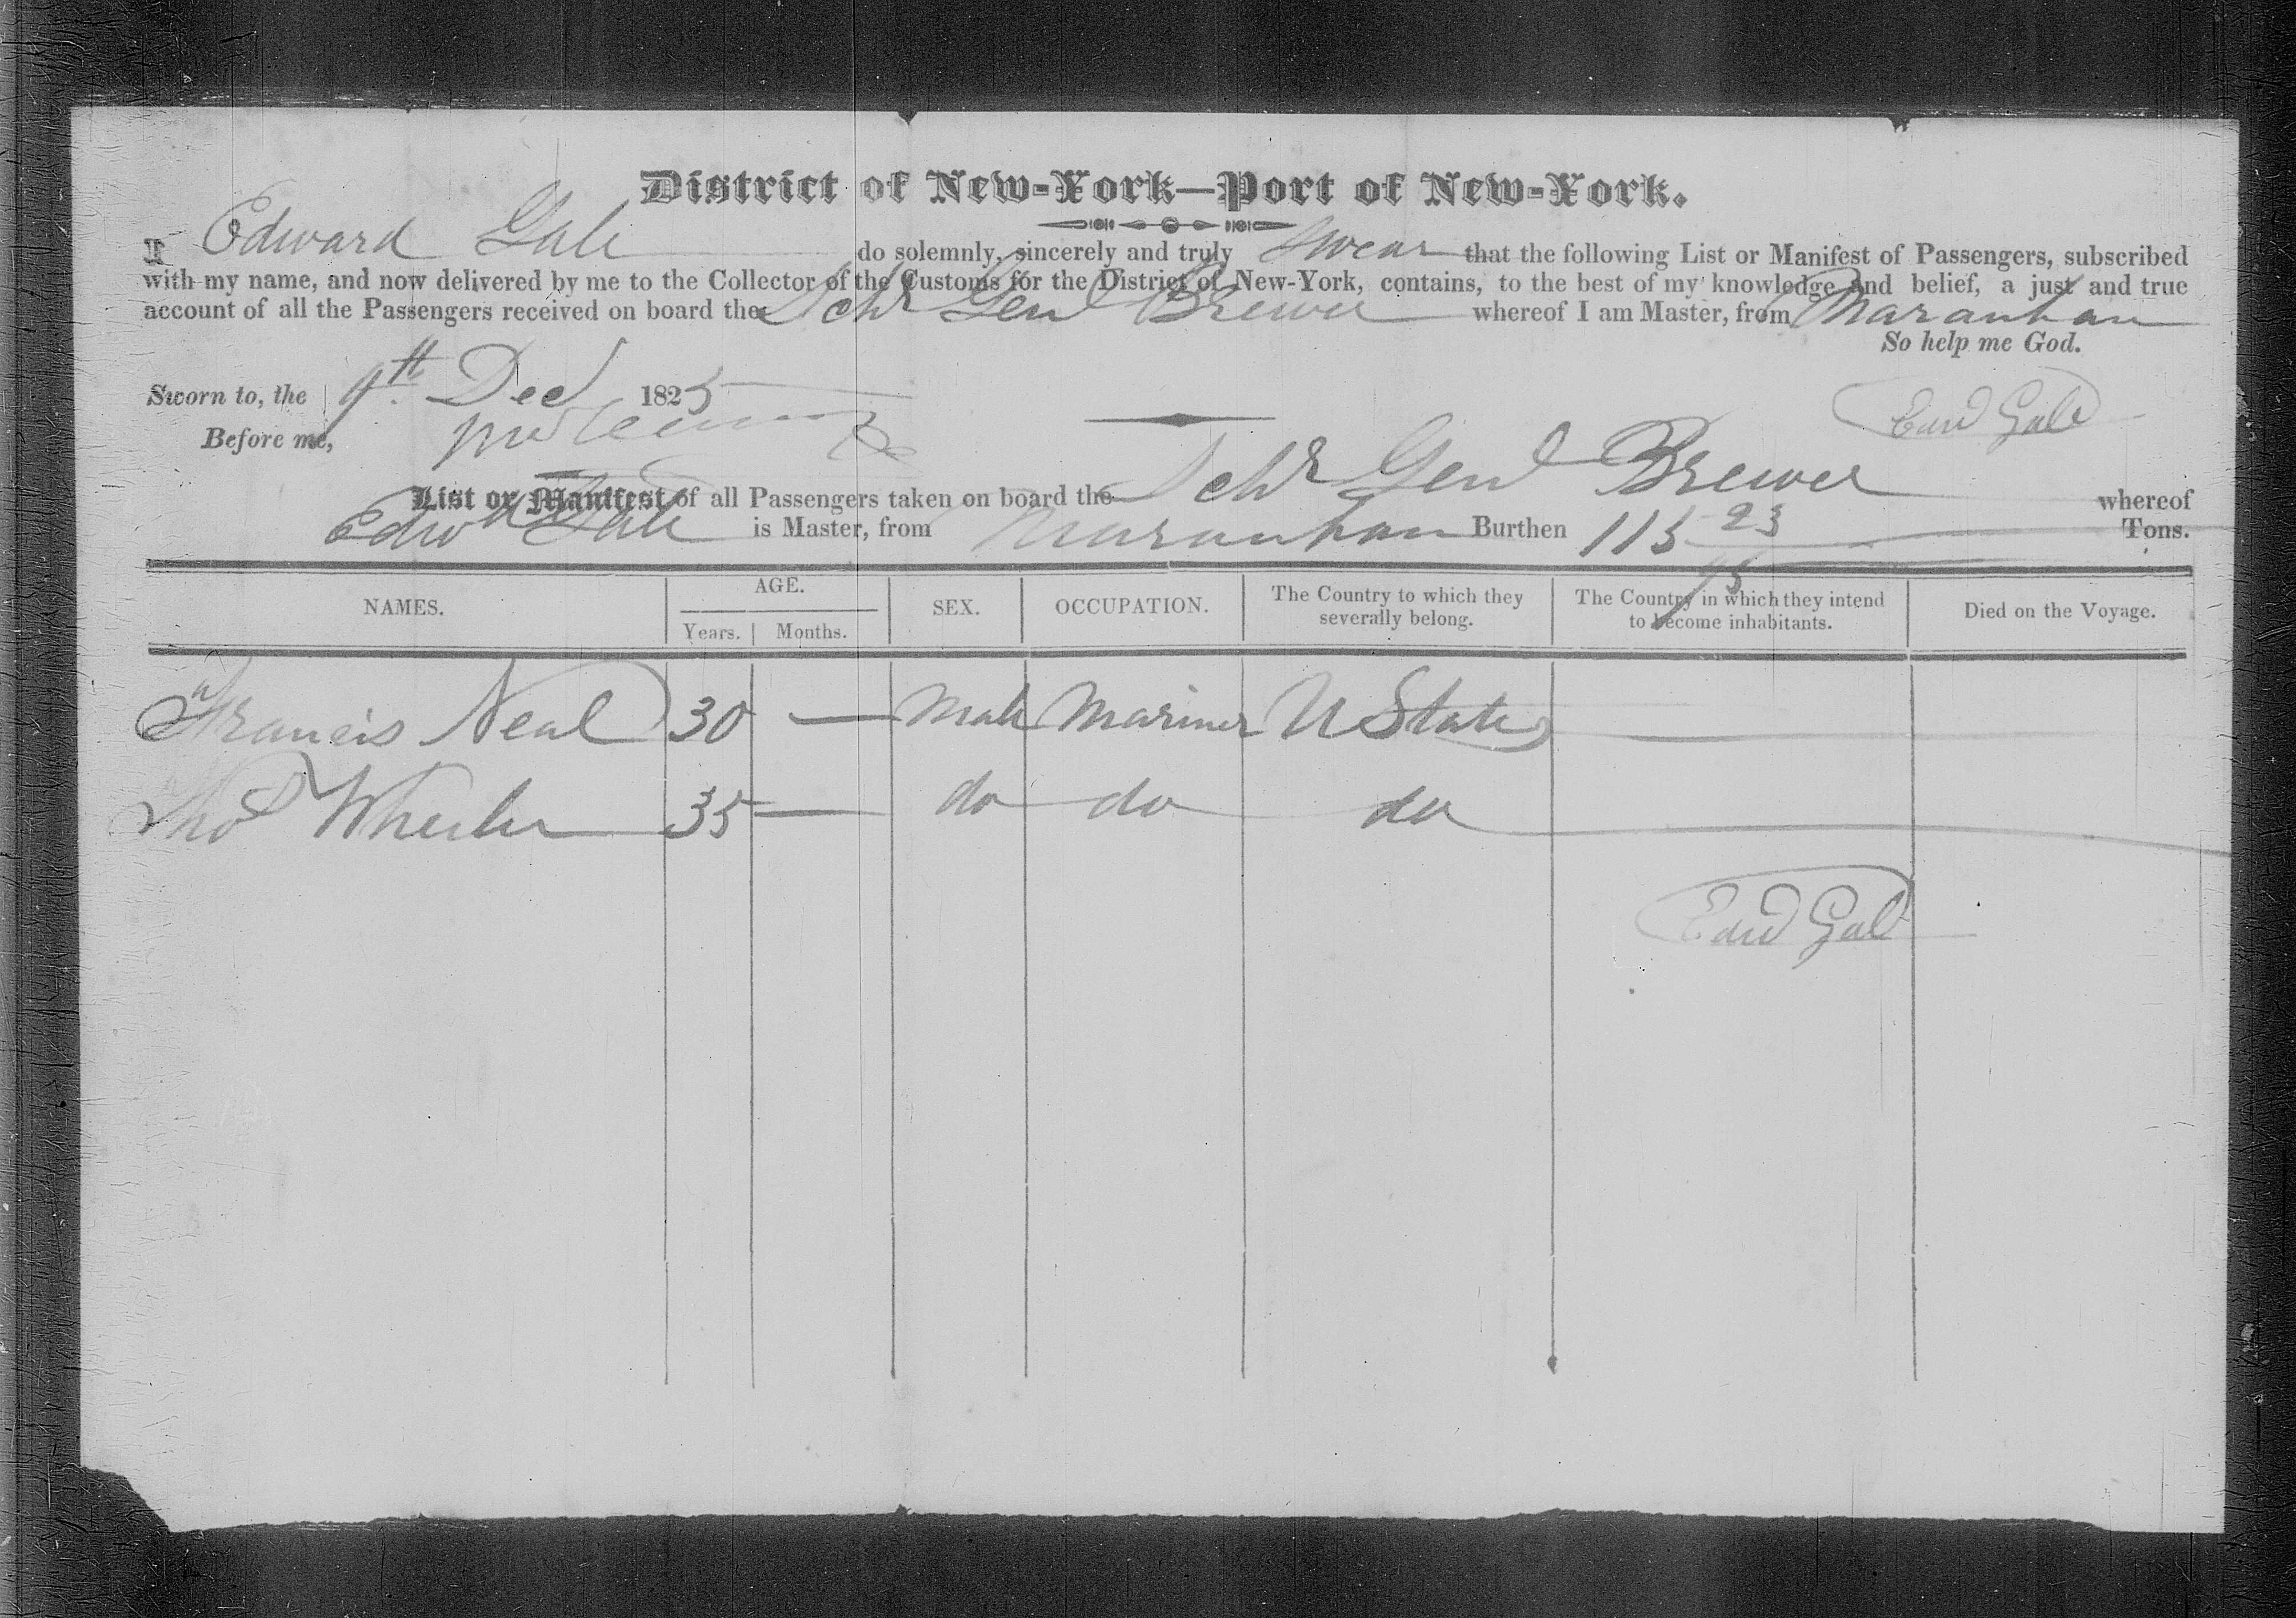 District of New-York—Port of New-York.
I Edward Gale do solemnly, sincerely and truly swear that the following List or Manifest of Passengers, subscribed
with my name, and now delivered by me to the Collector of the Customs for the District of New-York, contains, to the best of my knowledge and belief, a just and true
account of all the Passengers received on board the Schr Genl Brewer whereof I am Master, from Maranham
So help me God.
Sworn to, the 9th Decr 1825
Before me,
Edwd Gale
List or Manifest of all Passengers taken on board the Schr Genl Brewer whereof
Edwd Gale is Master, from Maranham Burthen 115 23/95 Tons.
NAMES. AGE. SEX. OCCUPATION. The Country to which they severally belong. The Country in which they intend to become inhabitants. Died on the Voyage.
Years. Months.
Francis Neal 30 — Male Mariner U States
Thos Wheeler 35 — do do do
Edwd Gale